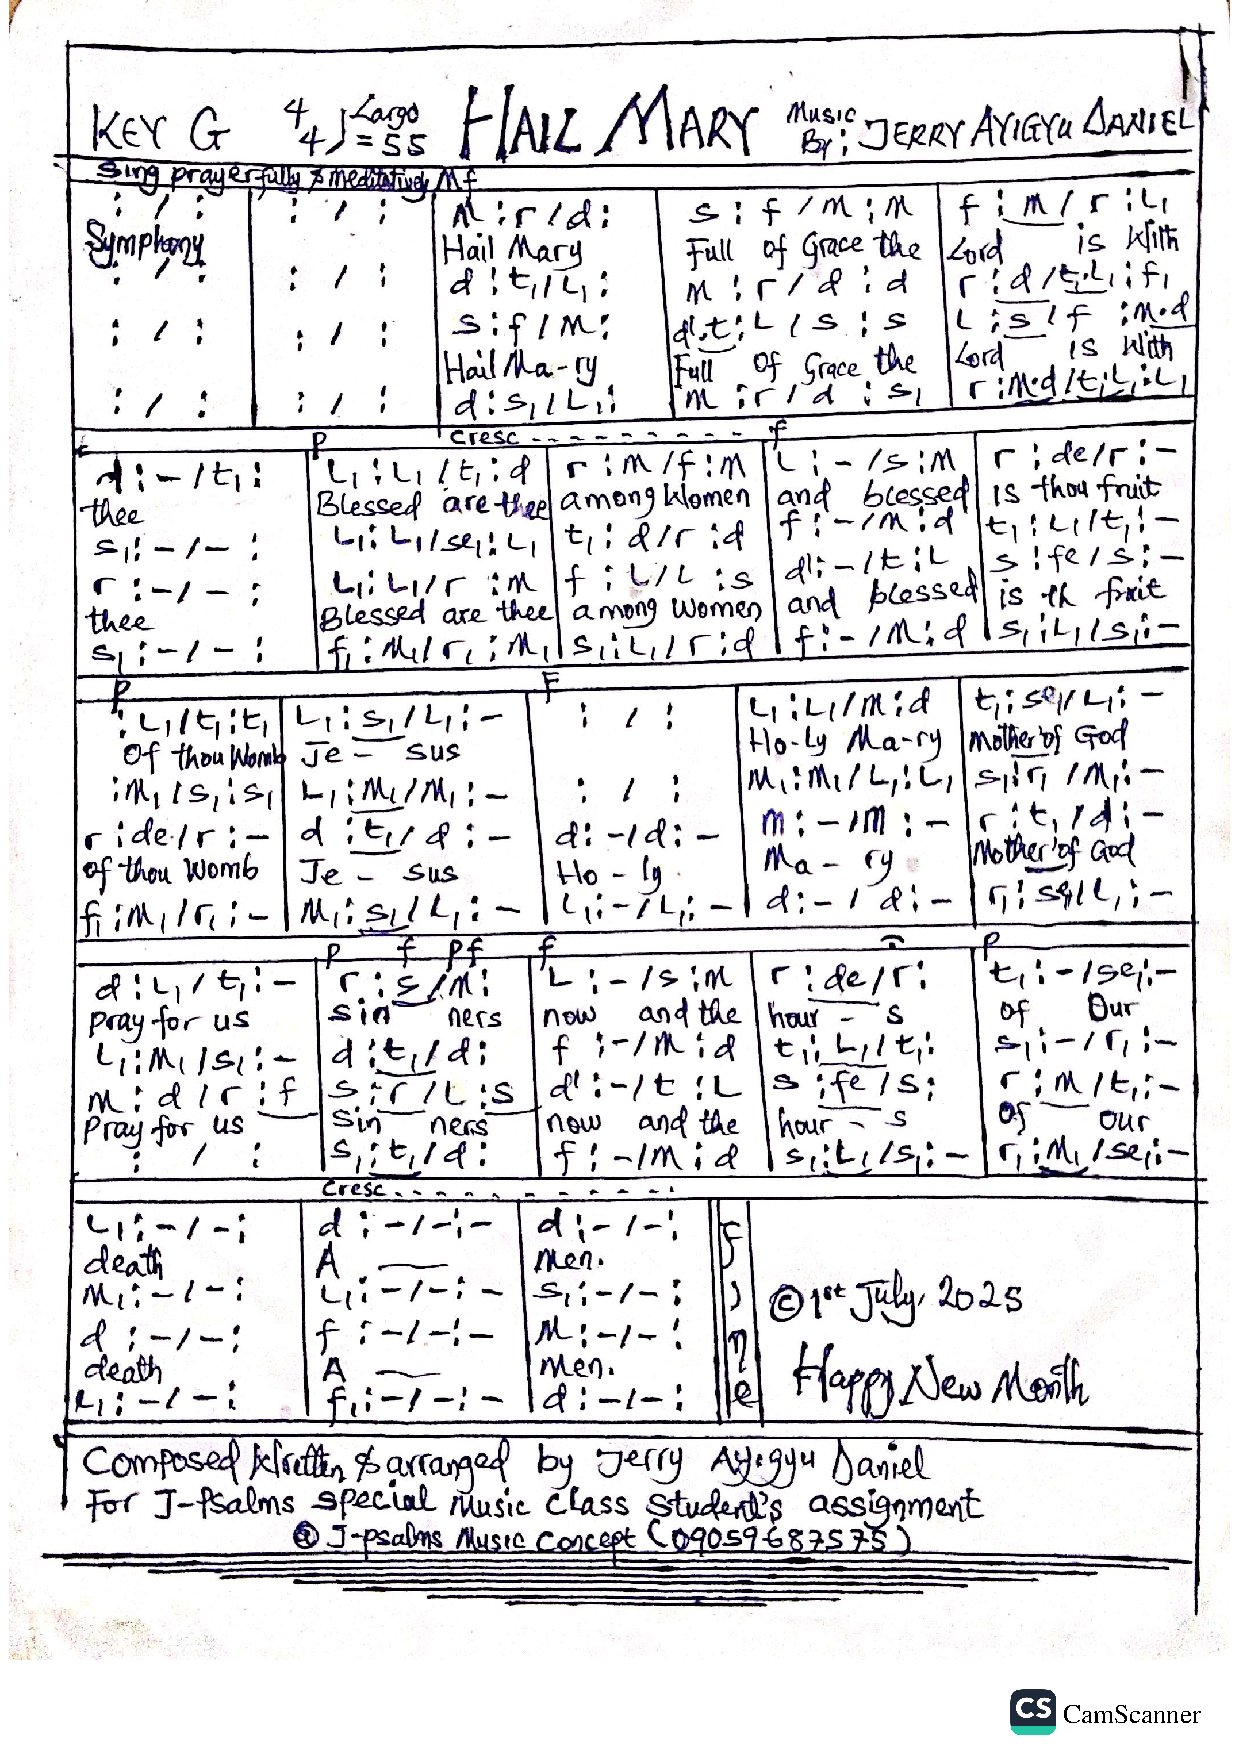 KEY G 4/4 ♩=55 Largo HAIL MARY Music By: JERRY AYIGYU DANIEL
Sing prayerfully & meditatively Mf
: / : | : / : | M : r / d : | s : f / m : m | f : m / r : L₁
Symphony | Hail Mary | Full of Grace the | Lord is With
: / : | : / : | d : t₁ / L₁ : | m : r / d : d | r : d / t₁.L₁ : f₁
: / : | : / : | s : f / m : | d'.t : L / s : s | L : s / f : m.d
Hail Ma-ry | Full of Grace the | Lord is With
: / : | : / : | d : s₁ / L₁ : | m : r / d : s₁ | r : m.d / t₁.L₁ : L₁
P cresc - - - - - - - - - f
d : - / t₁ : | L₁ : L₁ / t₁ : d | r : m / f : m | L : - / s : m | r : de / r : -
thee | Blessed are thee | among Women | and blessed | is thou fruit
s₁ : - / - : | L₁ : L₁ / se₁ : L₁ | t₁ : d / r : d | f : - / m : d | t₁ : L₁ / t₁ : -
r : - / - : | L₁ : L₁ / r : m | f : L / L : s | d' : - / t : L | s : fe / s : -
thee | Blessed are thee | among Women | and blessed | is th fruit
s₁ : - / - : | f₁ : m₁ / r₁ : m₁ | s₁ : L₁ / r : d | f : - / m : d | s₁ : L₁ / s₁ : -
P F
: L₁ / t₁ : t₁ | L₁ : s₁ / L₁ : - | : / : | L₁ : L₁ / m : d | t₁ : se₁ / L₁ : -
Of thou Womb | Je - sus | Ho-ly Ma-ry | mother of God
: m₁ / s₁ : s₁ | L₁ : m₁ / m₁ : - | : / : | m₁ : m₁ / L₁ : L₁ | s₁ : r₁ / m₁ : -
r : de / r : - | d : t₁ / d : - | d : - / d : - | m : - / m : - | r : t₁ / d : -
of thou Womb | Je - sus | Ho - ly | Ma - ry | Mother of God
f₁ : m₁ / r₁ : - | m₁ : s₁ / L₁ : - | L₁ : - / L₁ : - | d : - / d : - | r₁ : se₁ / L₁ : -
P f pf f P
d : L₁ / t₁ : - | r : s / m : | L : - / s : m | r : de / r : | t₁ : - / se₁ : -
pray for us | sin ners | now and the | hour - s | of Our
L₁ : m₁ / s₁ : - | d : t₁ / d : | f : - / m : d | t₁ : L₁ / t₁ : | s₁ : - / r₁ : -
m : d / r : f | s : r / L : s | d' : - / t : L | s : fe / s : | r : m / t₁ : -
Pray for us | sin ners | now and the | hour - s | of our
: / : | s₁ : t₁ / d : | f : - / m : d | s₁ : L₁ / s₁ : - | r₁ : m₁ / se₁ : -
cresc. - - - - - - - -
L₁ : - / - : | d : - / - : - | d : - / - : | Fine
death | A — | Men.
m₁ : - / - : | L₁ : - / - : - | s₁ : - / - :
© 1st July, 2025
d : - / - : | f : - / - : - | m : - / - :
death | A — | Men.
Happy New Month
L₁ : - / - : | f₁ : - / - : - | d : - / - :
Composed Written & arranged by Jerry Ayigyu Daniel
For J-Psalms special Music Class Student's assignment
@ J-psalms Music Concept (09059687575)
CS CamScanner